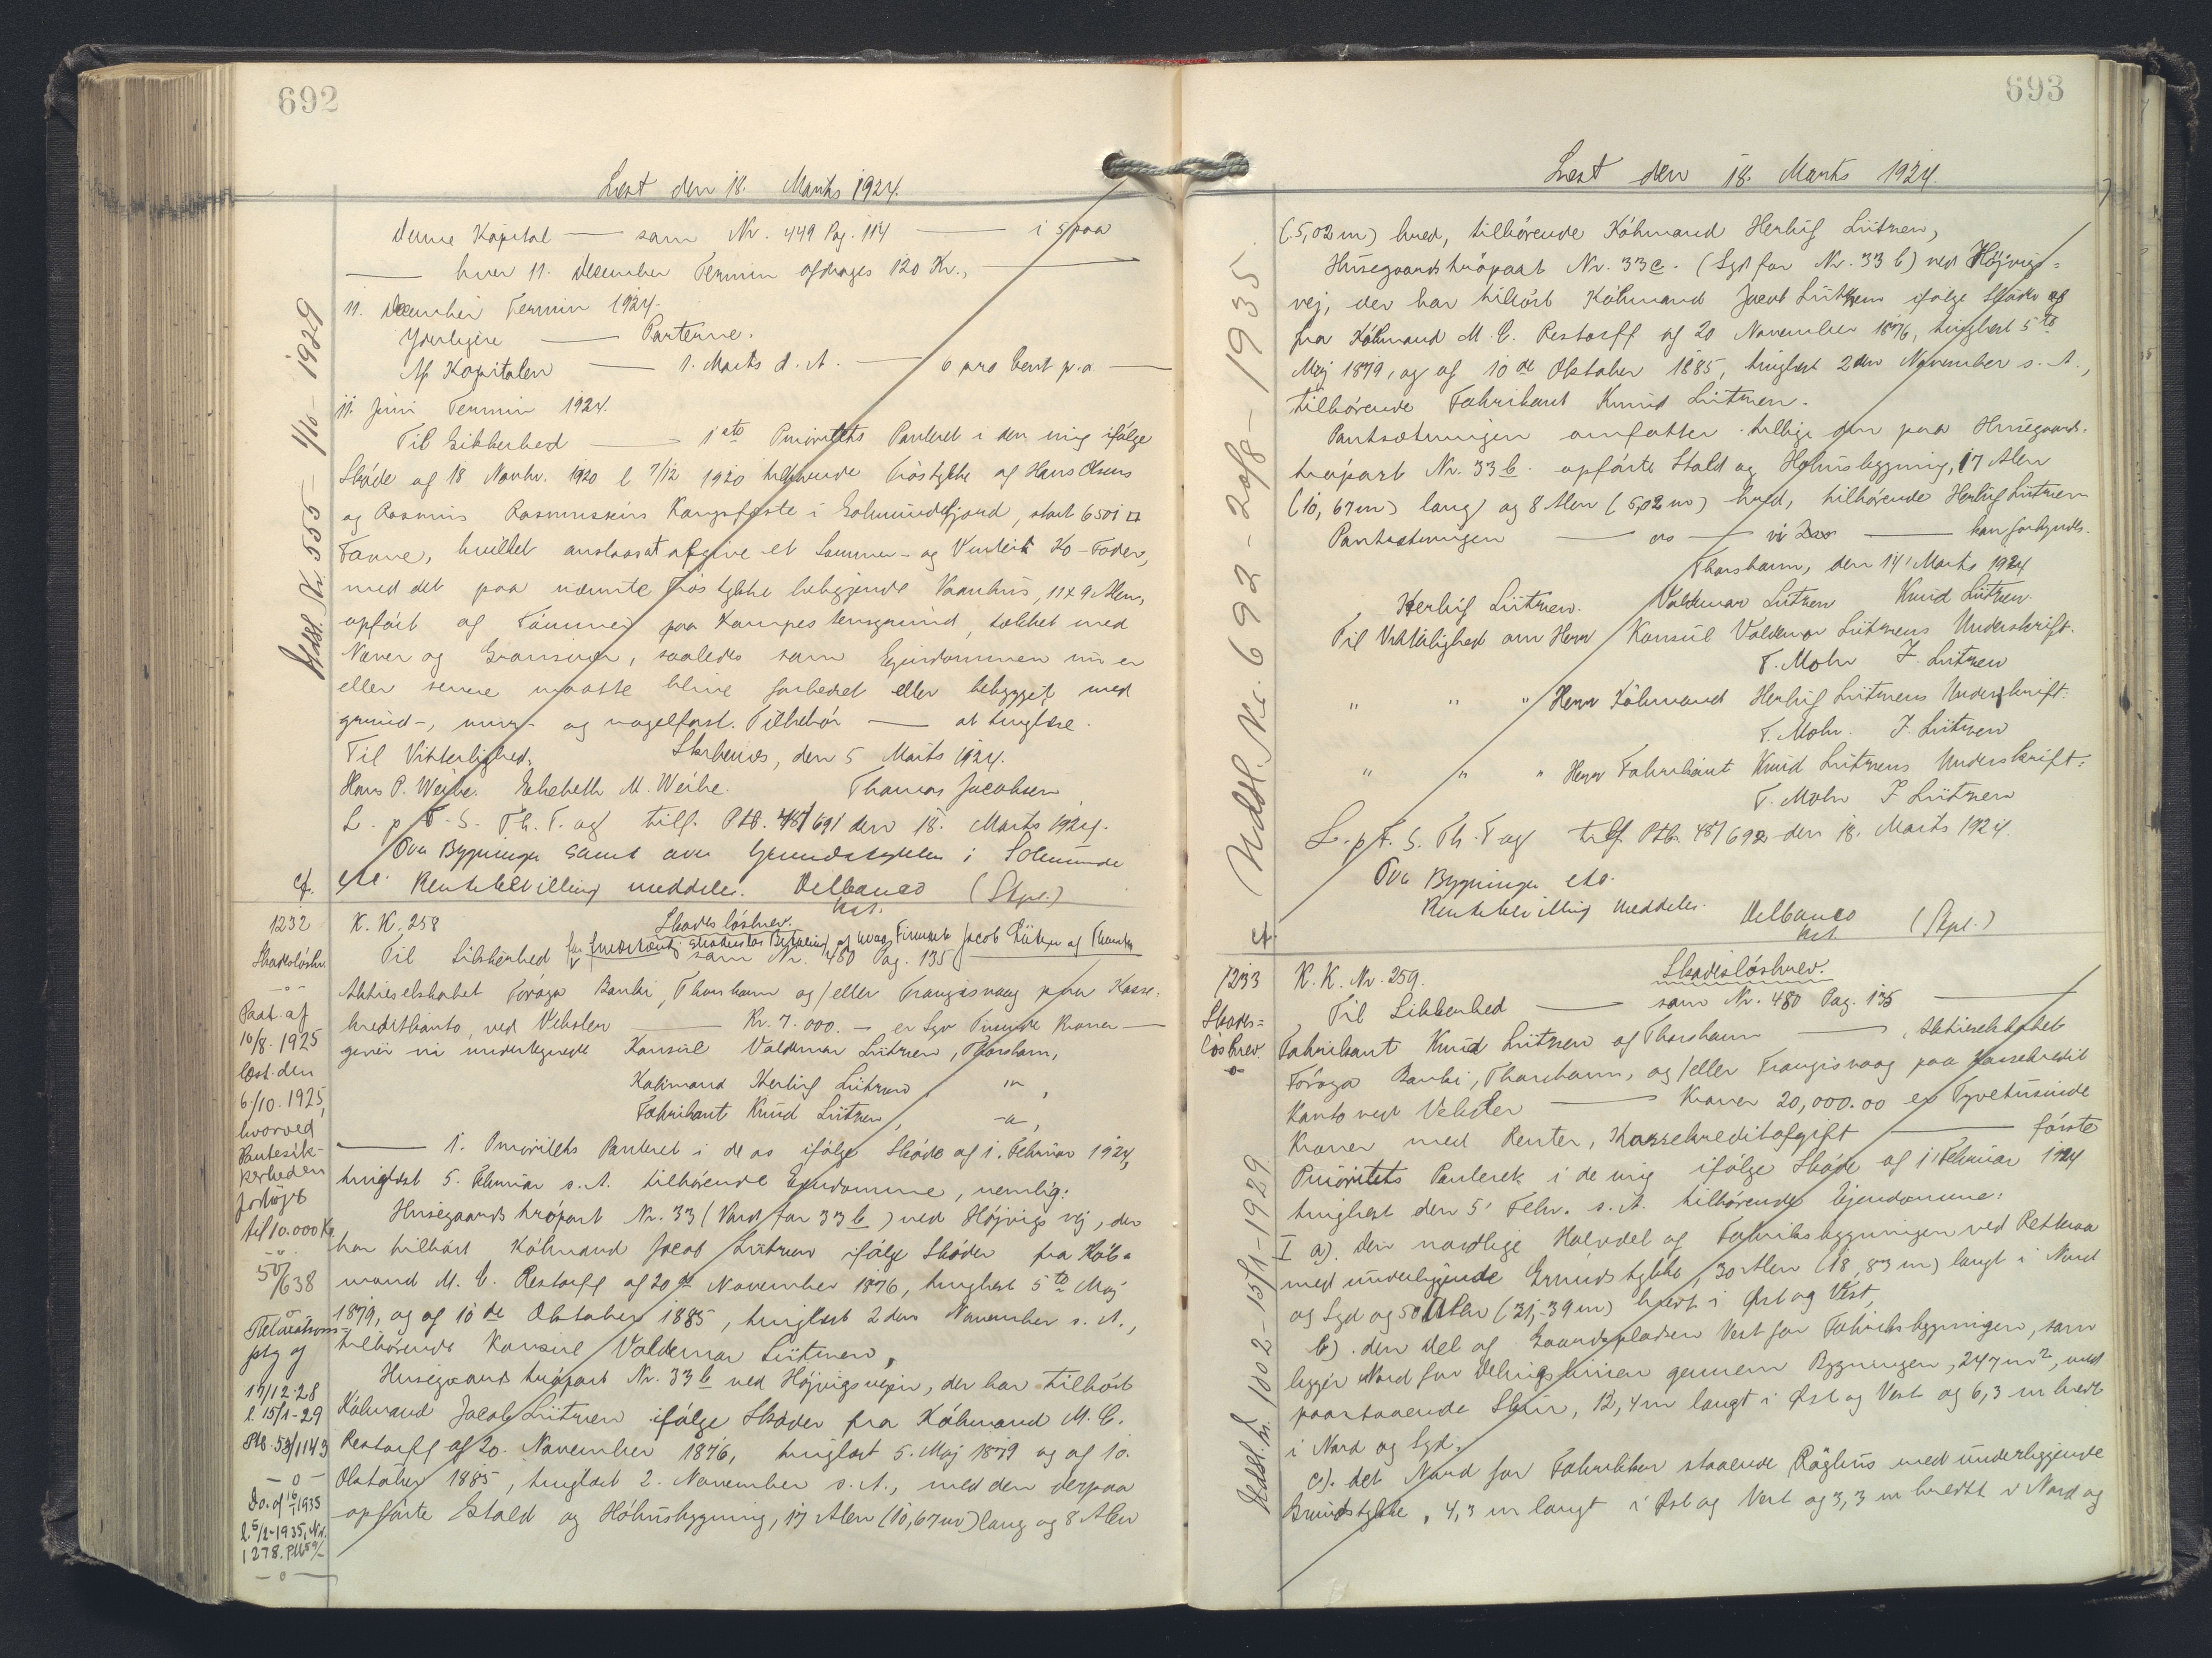 692
Læst den 18. Marts 1924.
Denne Kapital — som Nr. 449 Pag. 114 — i 5 paa
— hver 11. December Termin afdrages 120 Kr., —
11. December Termin 1924.
Yderligere — Parterne.
Af Kapitalen — 1. Marts d. A. — 6 pro Cent p.a. —
11. Juni Termin 1924.
Til Sikkerhed — 1ste Prioritets Panteret i den mig ifølge
Skøde af 18 Novbr. 1920 l 7/12 1920 tilhørende Trøstykke af Hans Olsens
og Rasmus Kongsfæste i , stort 6501 □
Favne, hvilket anslaas at afgive et Sommer- og Vinters Ko-Foder,
med det paa nævnte Trøstykke beliggende Vaanhus, 11 x 9 Alen,
opført af Tømmer paa Kampestensgrund, tækket med
Næver og Grønsvær, saaledes som Ejendommen nu er
eller senere maatte blive forbedret eller bebygget med
grund-, mur- og nagelfast. Tilbehør — at tinglæse.
Til Vitterlighed. , den 5 Marts 1924.
Hans P. Weihe. Elsebeth M. Weihe. Thomas Jacobsen
L. p. F. S. Th. T. og tilf. Ptb. 48/691 den 18. Marts 1924.
Ova Bygninger samt ova Grundstykket i
etc. Rentebevilling meddeles. Delbanco (Stpl.)
cf. kst.
Udsl. Nr. 555 — 1/10 — 1929
1232
K. K. 258
Skadesløsbrev.
Til Sikkerhed for skadesløs Betaling af hvad Firmaet Jacob Lützen af Thorshn
som Nr. 480 Pag. 135
Aktieselskabet Föroya Banki, Thorshavn og/eller Trangisvaag paa Kasse-
kreditkonto, ved Veksler — Kr. 7.000. — er Syv Tusinde Kroner —
giver vi undertegnede Konsul Valdemar Lützen, Thorshavn,
Købmand Herluf Lützen, " ,
Fabrikant Knud Lützen, -"- ,
— 1. Prioritets Panteret i de os ifølge Skøde af 1. Februar 1924,
tinglæst 5. Februar s. A. tilhørende Ejendomme, nemlig:
Husegaards trøpart Nr. 33 (Nord for 33 b) ved Højvigs vej, der
har tilhørt Købmand Jacob Lützen ifølge Skøder fra Køb-
mand M. C. Restorff af 20de November 1876, tinglæst 5te Maj
1879, og af 10de Oktober 1885, tinglæst 2den November s. A.,
tilhørende Konsul Valdemar Lützen,
Husegaards trøpart Nr. 33 b ved Højvigsvejen, der har tilhørt
Købmand Jacob Lützen ifølge Skøder fra Købmand M. C.
Restorff af 20. November 1876, tinglæst 5. Maj 1879 og af 10.
Oktober 1885, tinglæst 2. November s. A., med den derpaa
opførte Stald og Høhusbygning, 17 Alen (10,67 m) lang og 8 Alen
Skadesløsbr.
-o-
Paat. af
16/8. 1925
læst. den
6/10. 1925,
hvorved
Pantesik-
kerheden
forhøjes
til 10.000 Kr.
-o-
50/638
-o-
Relaxations-
ptg af
17/12-28
l. 15/1-29
Ptb 53/1143
-o-
Do. af 16/1 1935
l. 5/2-1935, Nr.
1278. Ptb 59/
-o-
693
Læst den 18. Marts 1924.
(5,02 m) bred, tilhørende Købmand Herluf Lützen,
Husegaards trøpart Nr. 33 c. (Syd for Nr. 33 b) ved Højvigs-
vej, der har tilhørt Købmand Jacob Lützen ifølge Skøder af
fra Købmand M. C. Restorff af 20 November 1876, tinglæst 5te
Maj 1879, og af 10de Oktober 1885, tinglæst 2den November s. A.,
tilhørende Fabrikant Knud Lützen.
Pantsætningen omfatter tillige den paa Husegaards-
trøpart Nr. 33 b. opførte Stald og Høhusbygning, 17 Alen
(10,67 m) lang og 8 Alen (5,02 m) bred, tilhørende Herluf Lützen
Pantsætningen — os — vi — kan forkyndes.
Thorshavn, den 14' Marts 1924
Herluf Lützen. Valdemar Lützen Knud Lützen.
Til Vitterlighed om Herr Konsul Valdemar Lützens Underskrift.
T. Mohr J. Lützen
" " " Herr Købmand Herluf Lützens Underskrift:
T. Mohr. J. Lützen
" " " Herr Fabrikant Knud Lützens Underskrift:
T. Mohr J Lützen
L. p. F. S. Th. T og tilf. Ptb. 48/692 den 18. Marts 1924.
Ova Bygninger etc.
Rentebevilling meddeles. Delbanco (Stpl.)
cf. kst.
Udsl. Nr. 692 — 20/8 — 1935
1233
K. K. Nr. 259.
Skadesløsbrev.
Skades-
løsbrev
-o-
Til Sikkerhed — som Nr. 480 Pag. 135 —
Fabrikant Knud Lützen af Thorshavn — , Aktieselskabet
Föroya Banki, Thorshavn, og/eller Trangisvaag paa Kassekredit
Konto ved Veksler — Kroner 20,000.00 er Tyvetusinde
Kroner med Renter, Kassekreditafgift — første
Prioritets Panteret i de mig ifølge Skøde af 1' Februar 1924
tinglæst den 5' Febr. s. A. tilhørende Ejendomme:
I a). den nordlige Halvdel af Fabriksbygningen ved
med underliggende Grundstykke, 30 Alen (18,83 m) langt i Nord
og Syd og 50 Alen (31,39 m) bredt i Øst og Vest,
b). den Del af Gaardspladsen Vest for Fabriksbygningen, som
ligger Nord for Delingslinien gennem Bygningen, 247 m², med
paastaaende Skur, 12,4 m langt i Øst og Vest og 6,3 m bredt
i Nord og Syd.
c). det Nord for Fabrikken staaende Røghus med underliggende
Grundstykke, 4,3 m langt i Øst og Vest og 3,3 m bredt i Nord og
Udsl. nr. 1002 — 15/1 — 1929